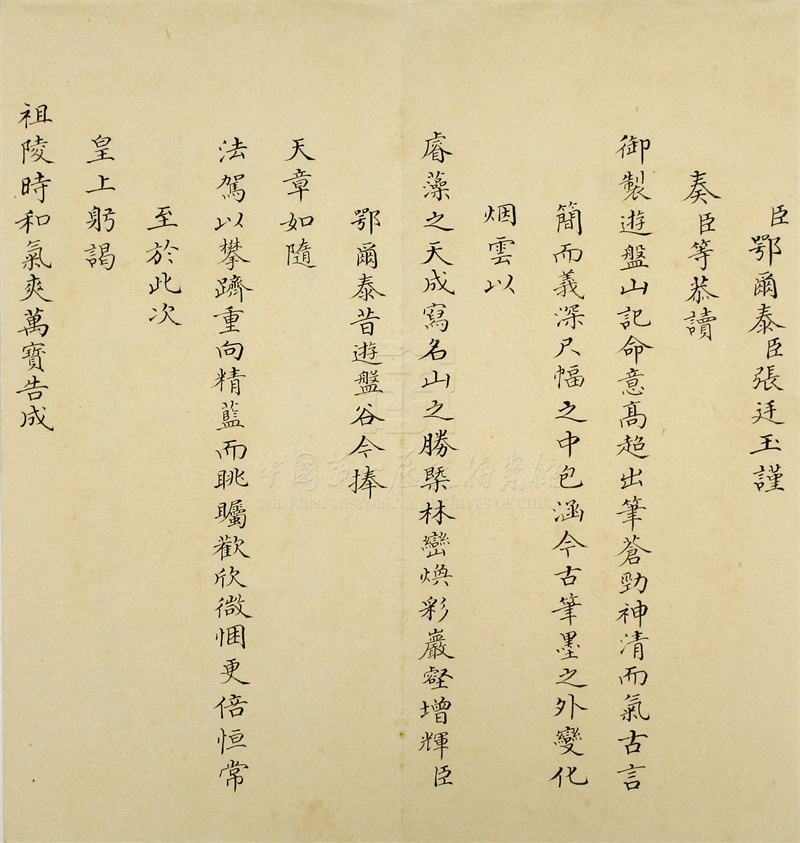 臣鄂爾泰臣張廷玉謹
奏臣等恭讀
御製遊盤山記命意高超出筆蒼勁神清而氣古言
簡而義深尺幅之中包涵今古筆墨之外變化
烟雲以
睿藻之天成寫名山之勝槩林巒煥彩巖壑增輝臣
鄂爾泰昔遊盤谷今捧
天章如隨
法駕以攀躋重向精藍而眺矚歡欣微悃更倍恒常
至於此次
皇上躬謁
祖陵時和氣爽萬寶告成
中國第一歷史檔案館
THE FIRST HISTORICAL ARCHIVES OF CHINA